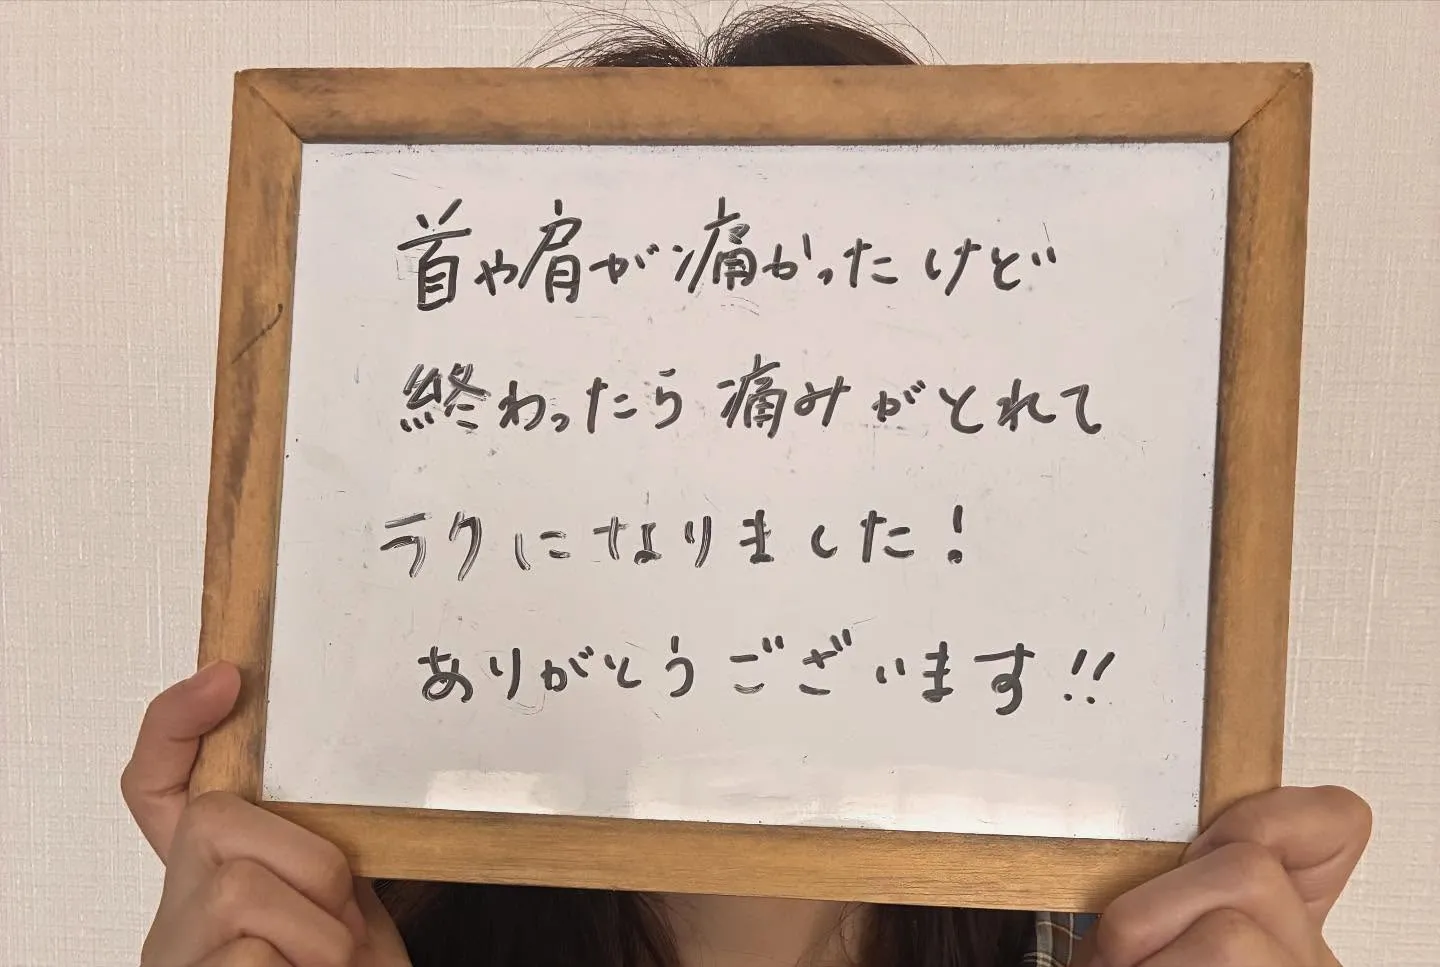 首や肩が痛かったけど
終わったら痛みがとれて
ラクになりました！
ありがとうございます!!